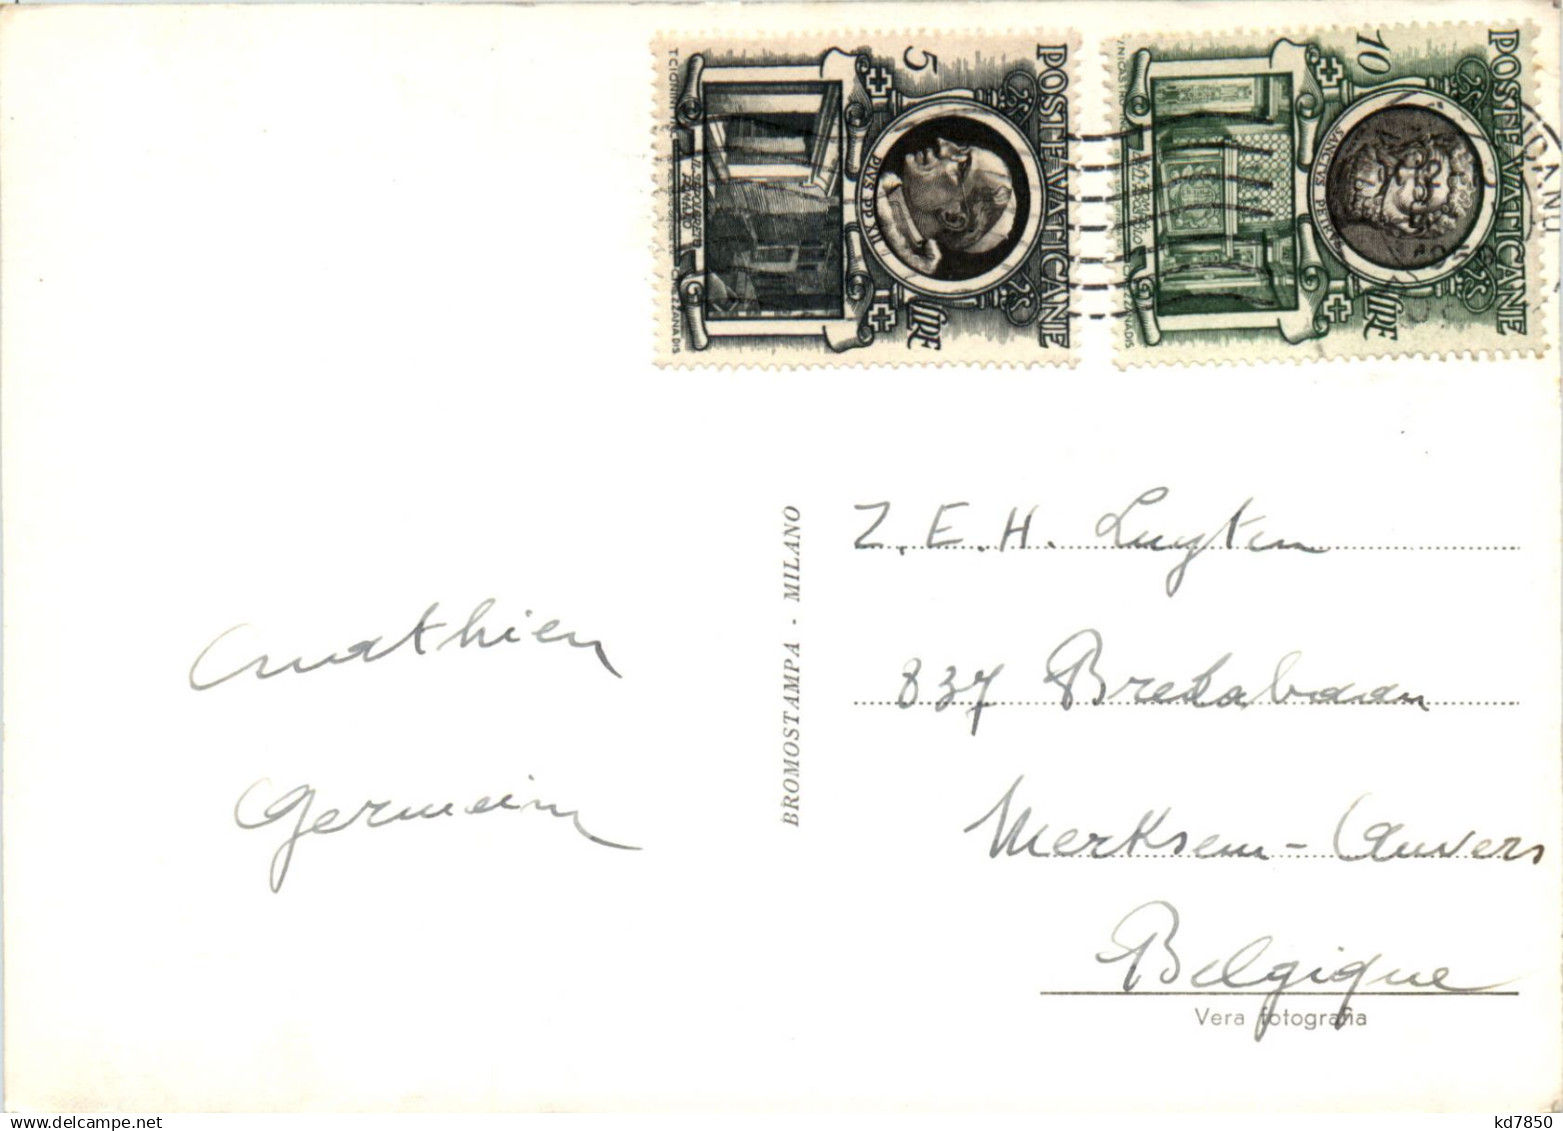 POSTE VATICANE
5
LIRE
PIVS PP. XII
POSTE VATICANE
10
LIRE
SANCTVS PETRVS
BROMOSTAMPA - MILANO
Z.E.H. Luyten
837 Bredabaan
Merksem - Anvers
Belgique
Vera fotografia
Mathieu
Germein
kd7850